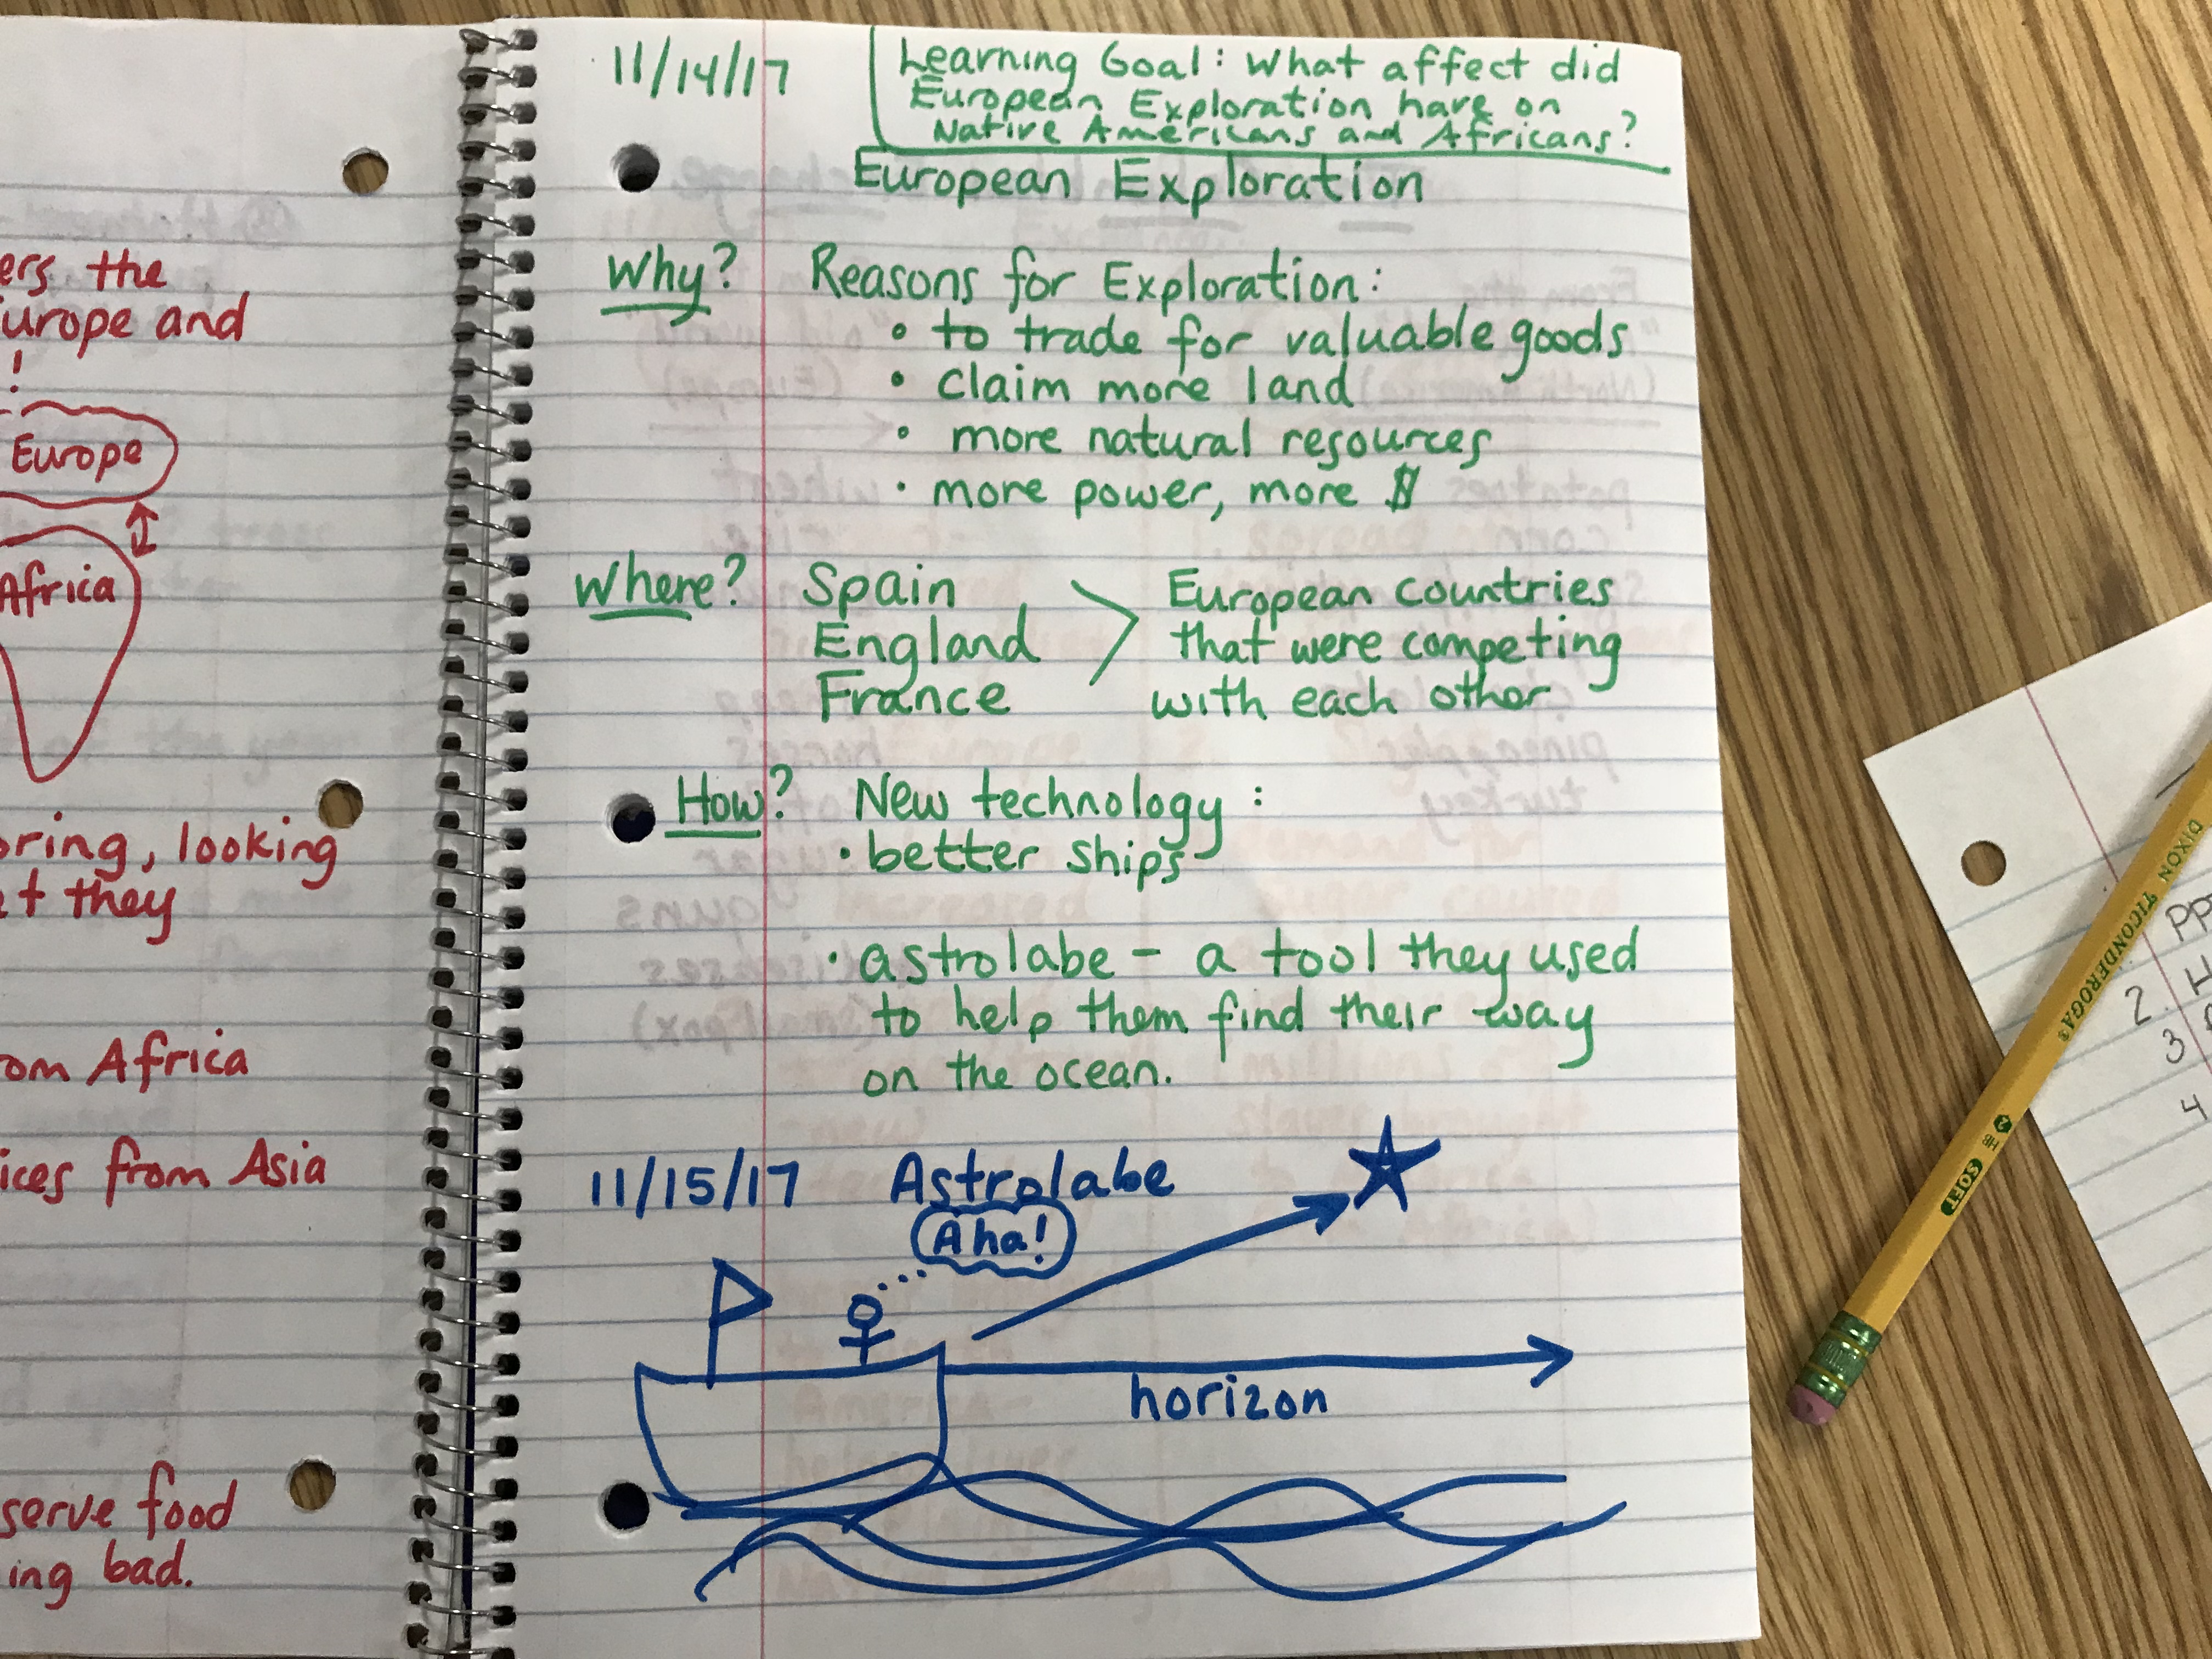 ers the
urope and
!
Europe
Africa
oring, looking
at they
om Africa
ices from Asia
serve food
ing bad.
11/14/17
Learning Goal: What affect did
European Exploration have on
Native Americans and Africans?
European Exploration
Why? Reasons for Exploration:
• to trade for valuable goods
• claim more land
• more natural resources
• more power, more $
Where? Spain
England
France
European countries
that were competing
with each other
How? New technology:
• better ships
• astrolabe - a tool they used
to help them find their way
on the ocean.
11/15/17 Astrolabe
Aha!
horizon
DIXON TICONDEROGA®
HB
SOFT
2. H
3
4